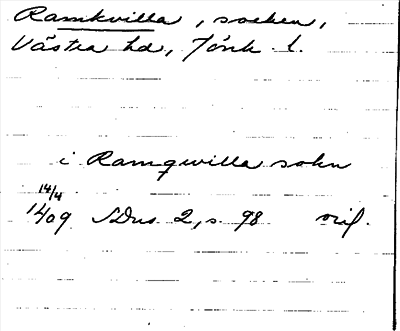 Ramkvilla, socken,
Västra hd, Jönk l.
i Ramqwilla sokn
14/4
1409 SDns 2, s. 98 orig.